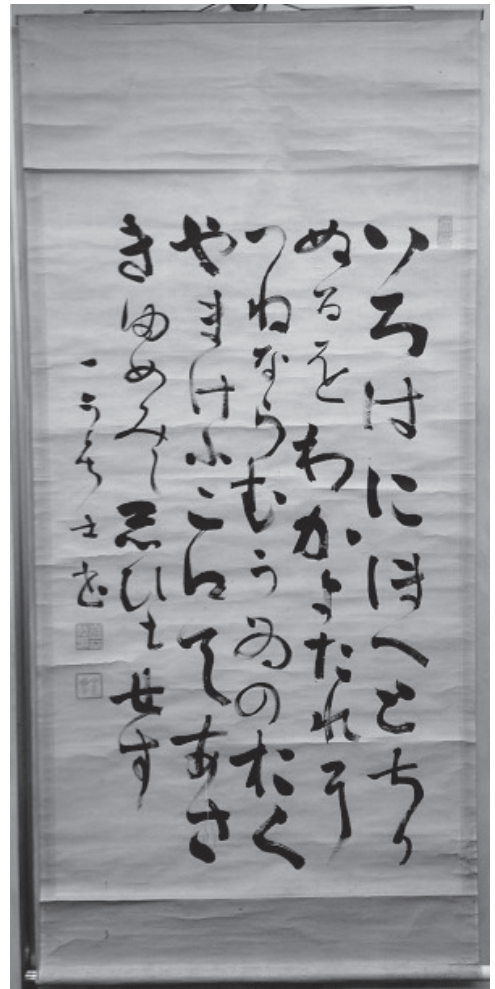 いろはにほへとちり
ぬるをわかよたれそ
つねならむうゐのおく
やまけふこえてあさ
きゆめみしゑひもせす